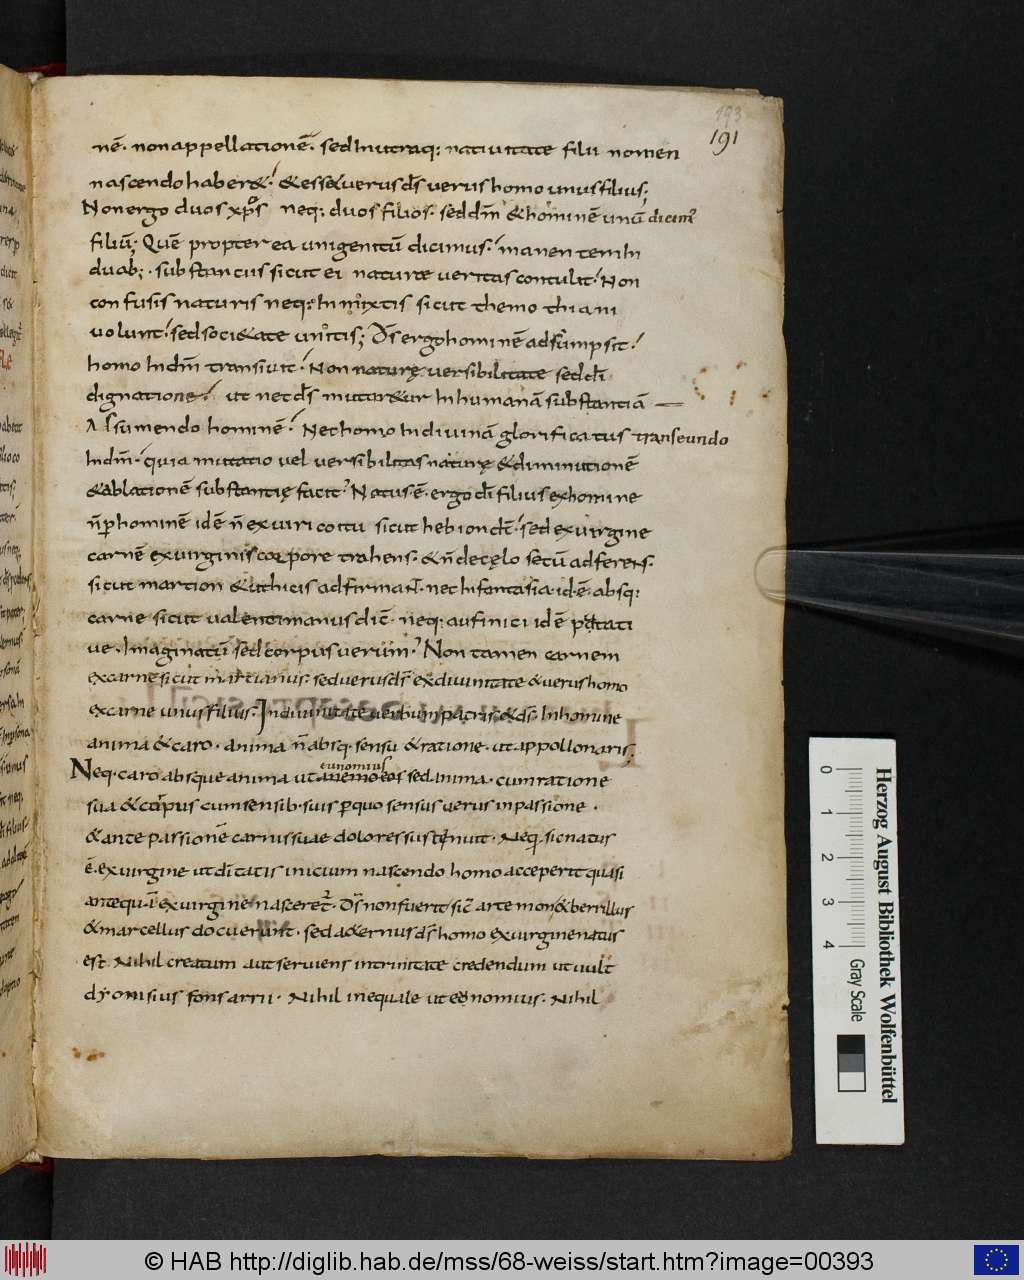 193
191
nē. non appellationē. sed In utraq: nativitate filii nomen
nascendo haber&. & esset verus ds̄ verus homo unus filius;
Non ergo duos xp̄os neq: duos filios. sed dm̄ & hominē unū dicim'
filiū; Quē propterea unigenitū dicimus. manentem In
duab; substantiis sicut ei naturae veritas contulit. Non
confusis naturis neq: In mixtis sicut themothiani
volunt. sed soci&ate unitis; Ds̄ ergo hominē adsumpsit.
homo In dm̄ transivit. Non naturę versibilitate sed dī
dignatione. ut nec ds̄ mutar&ur In humanā substantiā
Assumendo hominē. Nec homo In divinā glorificatus transeundo
In dm̄. quia mutatio vel versibilitas naturę & diminutionē
& ablationē substantię facit. Natus ē. ergo dī filius ex homine
n̄ p hominē id ē n̄ ex viri coitu sicut hebion dc̄. sed ex virgine
carnē ex virginis corpore trahens. & n̄ de cęlo secū adferens.
sicut marcion & uthicis adfirmaN̄. nec In fantasia .id.ē. absq:
carne sicut valentimanus dic̄. neq: aufinici idē putati
ve. Imaginatū sed corpus verum. Non tamen carnem
ex carne sicut martianus. sed verus ds̄ ex divinitate & verus homo
ex carne unus filius. In divinitate verbum patris & ds̄. In homine
anima & caro. anima n̄ absq. sensu & ratione. ut appollonaris;
eunomius
Neq. caro absque anima ut anemoeos sed anima. cum ratione
sua & corpus cum sensib. suis p quo sensus verus in passione.
& ante passionē carnis suae dolores sustenuit. Neq. sic natus
ē. ex virgine ut di&atis inicium nascendo homo acceperit quasi
antequā ex virgine nascer&. Ds̄ non fuerit sic̄ artemon & berrillus
& marcellus docuerunt. sed a&ernus ds̄ homo ex virgine natus
est Nihil creatum aut serviens in trinitate credendum ut vult
dyonisius fons arrii. Nihil inequale ut eonomius. Nihil
Herzog August Bibliothek Wolfenbüttel
0 1 2 3 4 Gray Scale
© HAB http://diglib.hab.de/mss/68-weiss/start.htm?image=00393